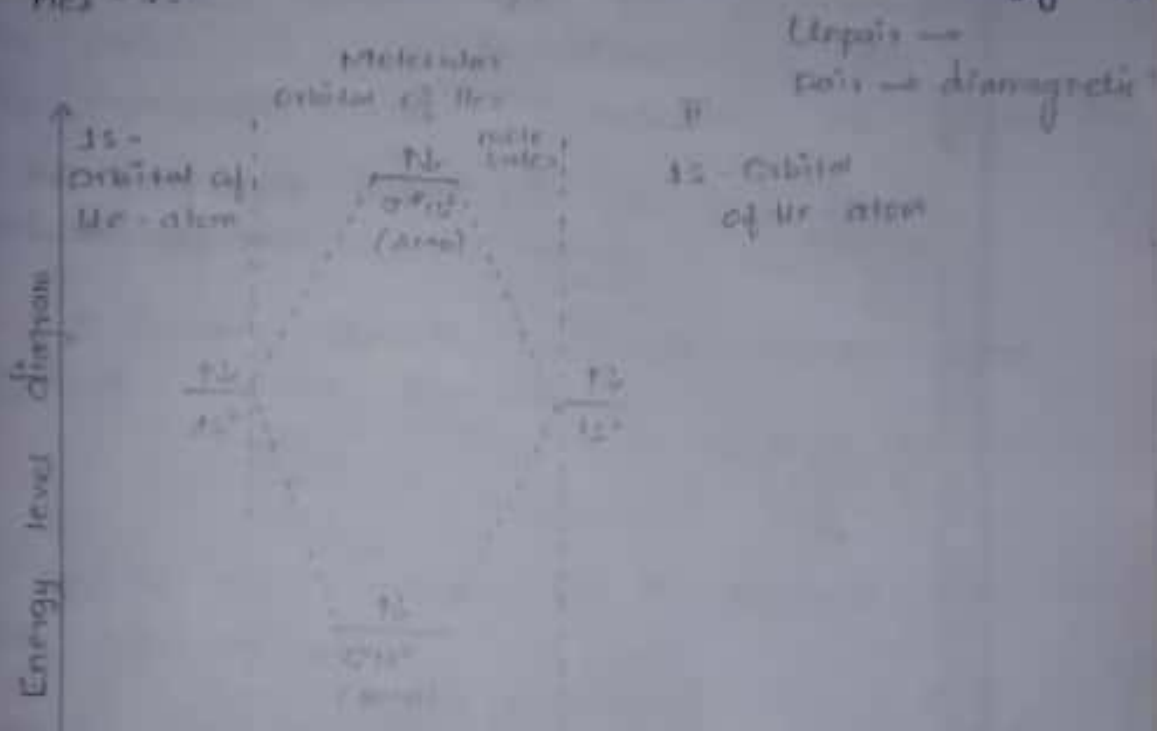 Unpair →
pair → diamagnetic
Molecular
Orbital of He₂
molecules
1s -
Orbital of
He - atom
↑↓
σ*1s²
(ABMO)
1s - Orbital
of He - atom
↑↓
1s²
↑↓
1s²
↑↓
Energy level diagram